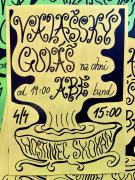 VALAŠSKÝ
GULÁŠ na ohni
od 19:00 ABE band
4/4 15:00
HOSTINEC SHOWADY